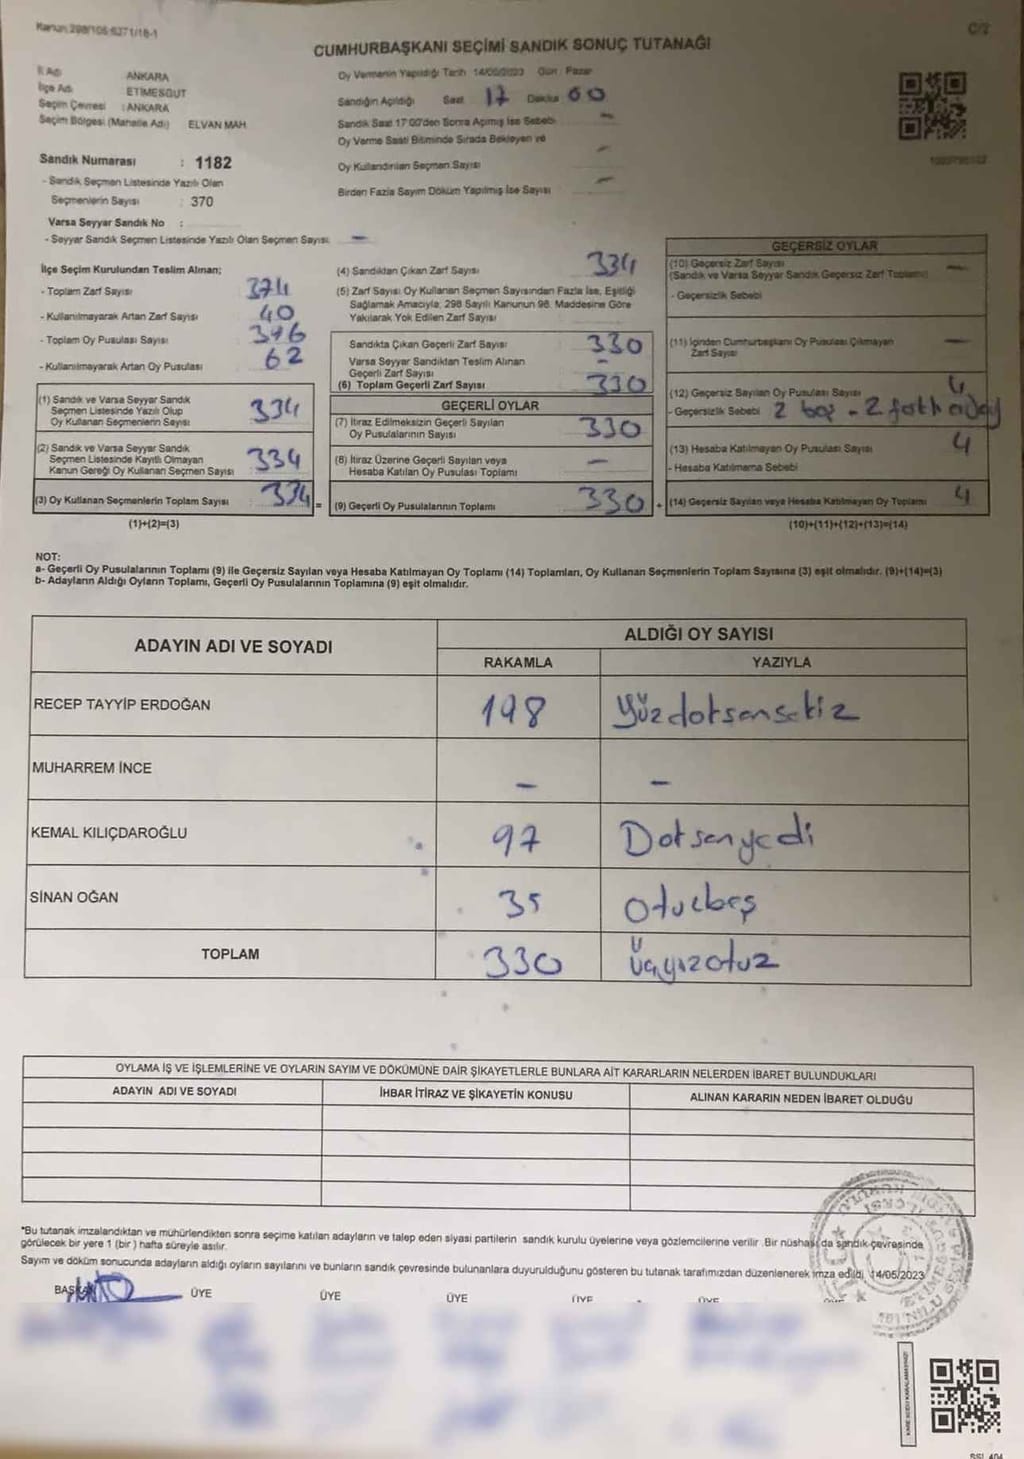 Kanun:298/105-6271/18-1
C/2
CUMHURBAŞKANI SEÇİMİ SANDIK SONUÇ TUTANAĞI
İl Adı ANKARA
İlçe Adı ETİMESGUT
Seçim Çevresi : ANKARA
Seçim Bölgesi (Mahalle Adı) ELVAN MAH
Sandık Numarası : 1182
- Sandık Seçmen Listesinde Yazılı Olan
Seçmenlerin Sayısı : 370
Varsa Seyyar Sandık No :
- Seyyar Sandık Seçmen Listesinde Yazılı Olan Seçmen Sayısı -
Oy Vermenin Yapıldığı Tarih 14/05/2023 Gün : Pazar
Sandığın Açıldığı Saat 17 Dakika 00
Sandık Saat 17:00'den Sonra Açılmış İse Sebebi -
Oy Verme Saati Bitiminde Sırada Bekleyen ve
Oy Kullandırılan Seçmen Sayısı -
Birden Fazla Sayım Döküm Yapılmış İse Sayısı -
İlçe Seçim Kurulundan Teslim Alınan;
- Toplam Zarf Sayısı 374
- Kullanılmayarak Artan Zarf Sayısı 40
- Toplam Oy Pusulası Sayısı 396
- Kullanılmayarak Artan Oy Pusulası 62
(1) Sandık ve Varsa Seyyar Sandık
Seçmen Listesinde Yazılı Olup
Oy Kullanan Seçmenlerin Sayısı 334
(2) Sandık ve Varsa Seyyar Sandık
Seçmen Listesinde Kayıtlı Olmayan
Kanun Gereği Oy Kullanan Seçmen Sayısı 334
(3) Oy Kullanan Seçmenlerin Toplam Sayısı 334 =
(1)+(2)=(3)
(4) Sandıktan Çıkan Zarf Sayısı 334
(5) Zarf Sayısı Oy Kullanan Seçmen Sayısından Fazla İse, Eşitliği
Sağlamak Amacıyla, 298 Sayılı Kanunun 98. Maddesine Göre
Yakılarak Yok Edilen Zarf Sayısı
Sandıkta Çıkan Geçerli Zarf Sayısı 330
Varsa Seyyar Sandıktan Teslim Alınan
Geçerli Zarf Sayısı -
(6) Toplam Geçerli Zarf Sayısı 330
GEÇERLİ OYLAR
(7) İtiraz Edilmeksizin Geçerli Sayılan
Oy Pusulalarının Sayısı 330
(8) İtiraz Üzerine Geçerli Sayılan veya
Hesaba Katılan Oy Pusulası Toplamı -
(9) Geçerli Oy Pusulalarının Toplamı 330 +
GEÇERSİZ OYLAR
(10) Geçersiz Zarf Sayısı
(Sandık ve Varsa Seyyar Sandık Geçersiz Zarf Toplamı) -
- Geçersizlik Sebebi
(11) İçinden Cumhurbaşkanı Oy Pusulası Çıkmayan
Zarf Sayısı -
(12) Geçersiz Sayılan Oy Pusulası Sayısı 4
- Geçersizlik Sebebi 2 boş - 2 farklı aday
(13) Hesaba Katılmayan Oy Pusulası Sayısı 4
- Hesaba Katılmama Sebebi
(14) Geçersiz Sayılan veya Hesaba Katılmayan Oy Toplamı 4
(10)+(11)+(12)+(13)=(14)
NOT:
a- Geçerli Oy Pusulalarının Toplamı (9) ile Geçersiz Sayılan veya Hesaba Katılmayan Oy Toplamı (14) Toplamları, Oy Kullanan Seçmenlerin Toplam Sayısına (3) eşit olmalıdır. (9)+(14)=(3)
b- Adayların Aldığı Oyların Toplamı, Geçerli Oy Pusulalarının Toplamına (9) eşit olmalıdır.
ADAYIN ADI VE SOYADI
ALDIĞI OY SAYISI
RAKAMLA YAZIYLA
RECEP TAYYİP ERDOĞAN 198 Yüzdoksansekiz
MUHARREM İNCE - -
KEMAL KILIÇDAROĞLU 97 Doksanyedi
SİNAN OĞAN 35 Otuzbeş
TOPLAM 330 Üçyüzotuz
OYLAMA İŞ VE İŞLEMLERİNE VE OYLARIN SAYIM VE DÖKÜMÜNE DAİR ŞİKAYETLERLE BUNLARA AİT KARARLARIN NELERDEN İBARET BULUNDUKLARI
ADAYIN ADI VE SOYADI İHBAR İTİRAZ VE ŞİKAYETİN KONUSU ALINAN KARARIN NEDEN İBARET OLDUĞU
*Bu tutanak imzalandıktan ve mühürlendikten sonra seçime katılan adayların ve talep eden siyasi partilerin sandık kurulu üyelerine veya gözlemcilerine verilir. Bir nüshası da sandık çevresinde
görülecek bir yere 1 (bir) hafta süreyle asılır.
Sayım ve döküm sonucunda adayların aldığı oyların sayılarını ve bunların sandık çevresinde bulunanlara duyurulduğunu gösteren bu tutanak tarafımızdan düzenlenerek imza edildi. 14/05/2023
BAŞKAN ÜYE ÜYE ÜYE ÜYE ÜYE